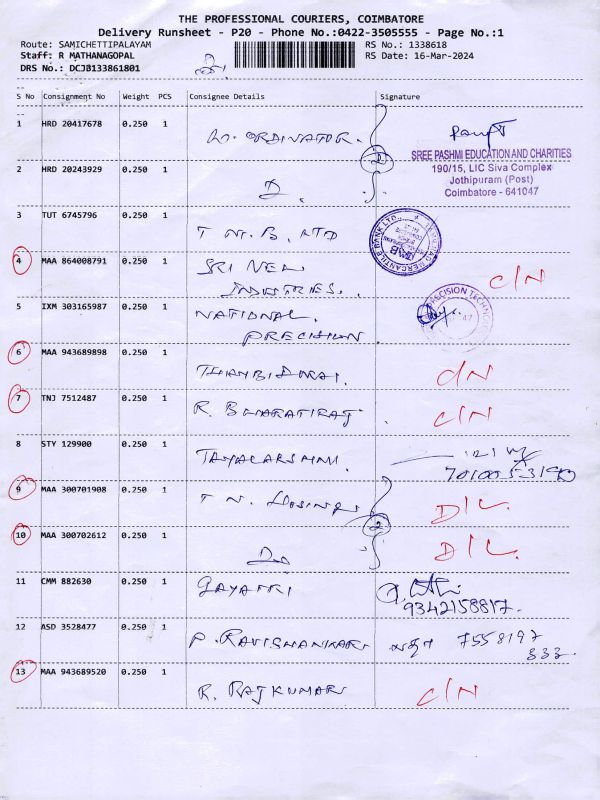 THE PROFESSIONAL COURIERS, COIMBATORE
Delivery Runsheet - P20 - Phone No.:0422-3505555 - Page No.:1
Route: SAMICHETTIPALAYAM RS No.: 1338618
Staff: R MATHANAGOPAL RS Date: 16-Mar-2024
DRS No.: DCJB133861801
S No Consignment No Weight PCS Consignee Details Signature
1 HRD 20417678 0.250 1 CO. ORDINATOR.
SREE PASHMI EDUCATION AND CHARITIES
190/15, LIC Siva Complex
Jothipuram (Post)
Coimbatore - 641047
2 HRD 20243929 0.250 1 D. 2
3 TUT 6745796 0.250 1 T N. B. LTD
MERCANTILE BANK LTD
4 MAA 864008791 0.250 1 SRI VEL C/N
INDUSTRIES.
5 IXM 303165987 0.250 1 NATIONAL
PRECISION
PRECISION TECHNO
47
6 MAA 943689898 0.250 1 THAMBIDURAI. C/N
7 TNJ 7512487 0.250 1 R. BHARATIRAJ. C/N
8 STY 129900 0.250 1 JAYALAKSHMI.
9 MAA 300701908 0.250 1 T N. HOUSING D/L.
10 MAA 300702612 0.250 1 Do 2 D/L.
11 CMM 882630 0.250 1 GAYATRI
9342158817.
12 ASD 3528477 0.250 1 P. RAVISHANKAR 7558197
333.
13 MAA 943689520 0.250 1 R. RAJKUMAR C/N